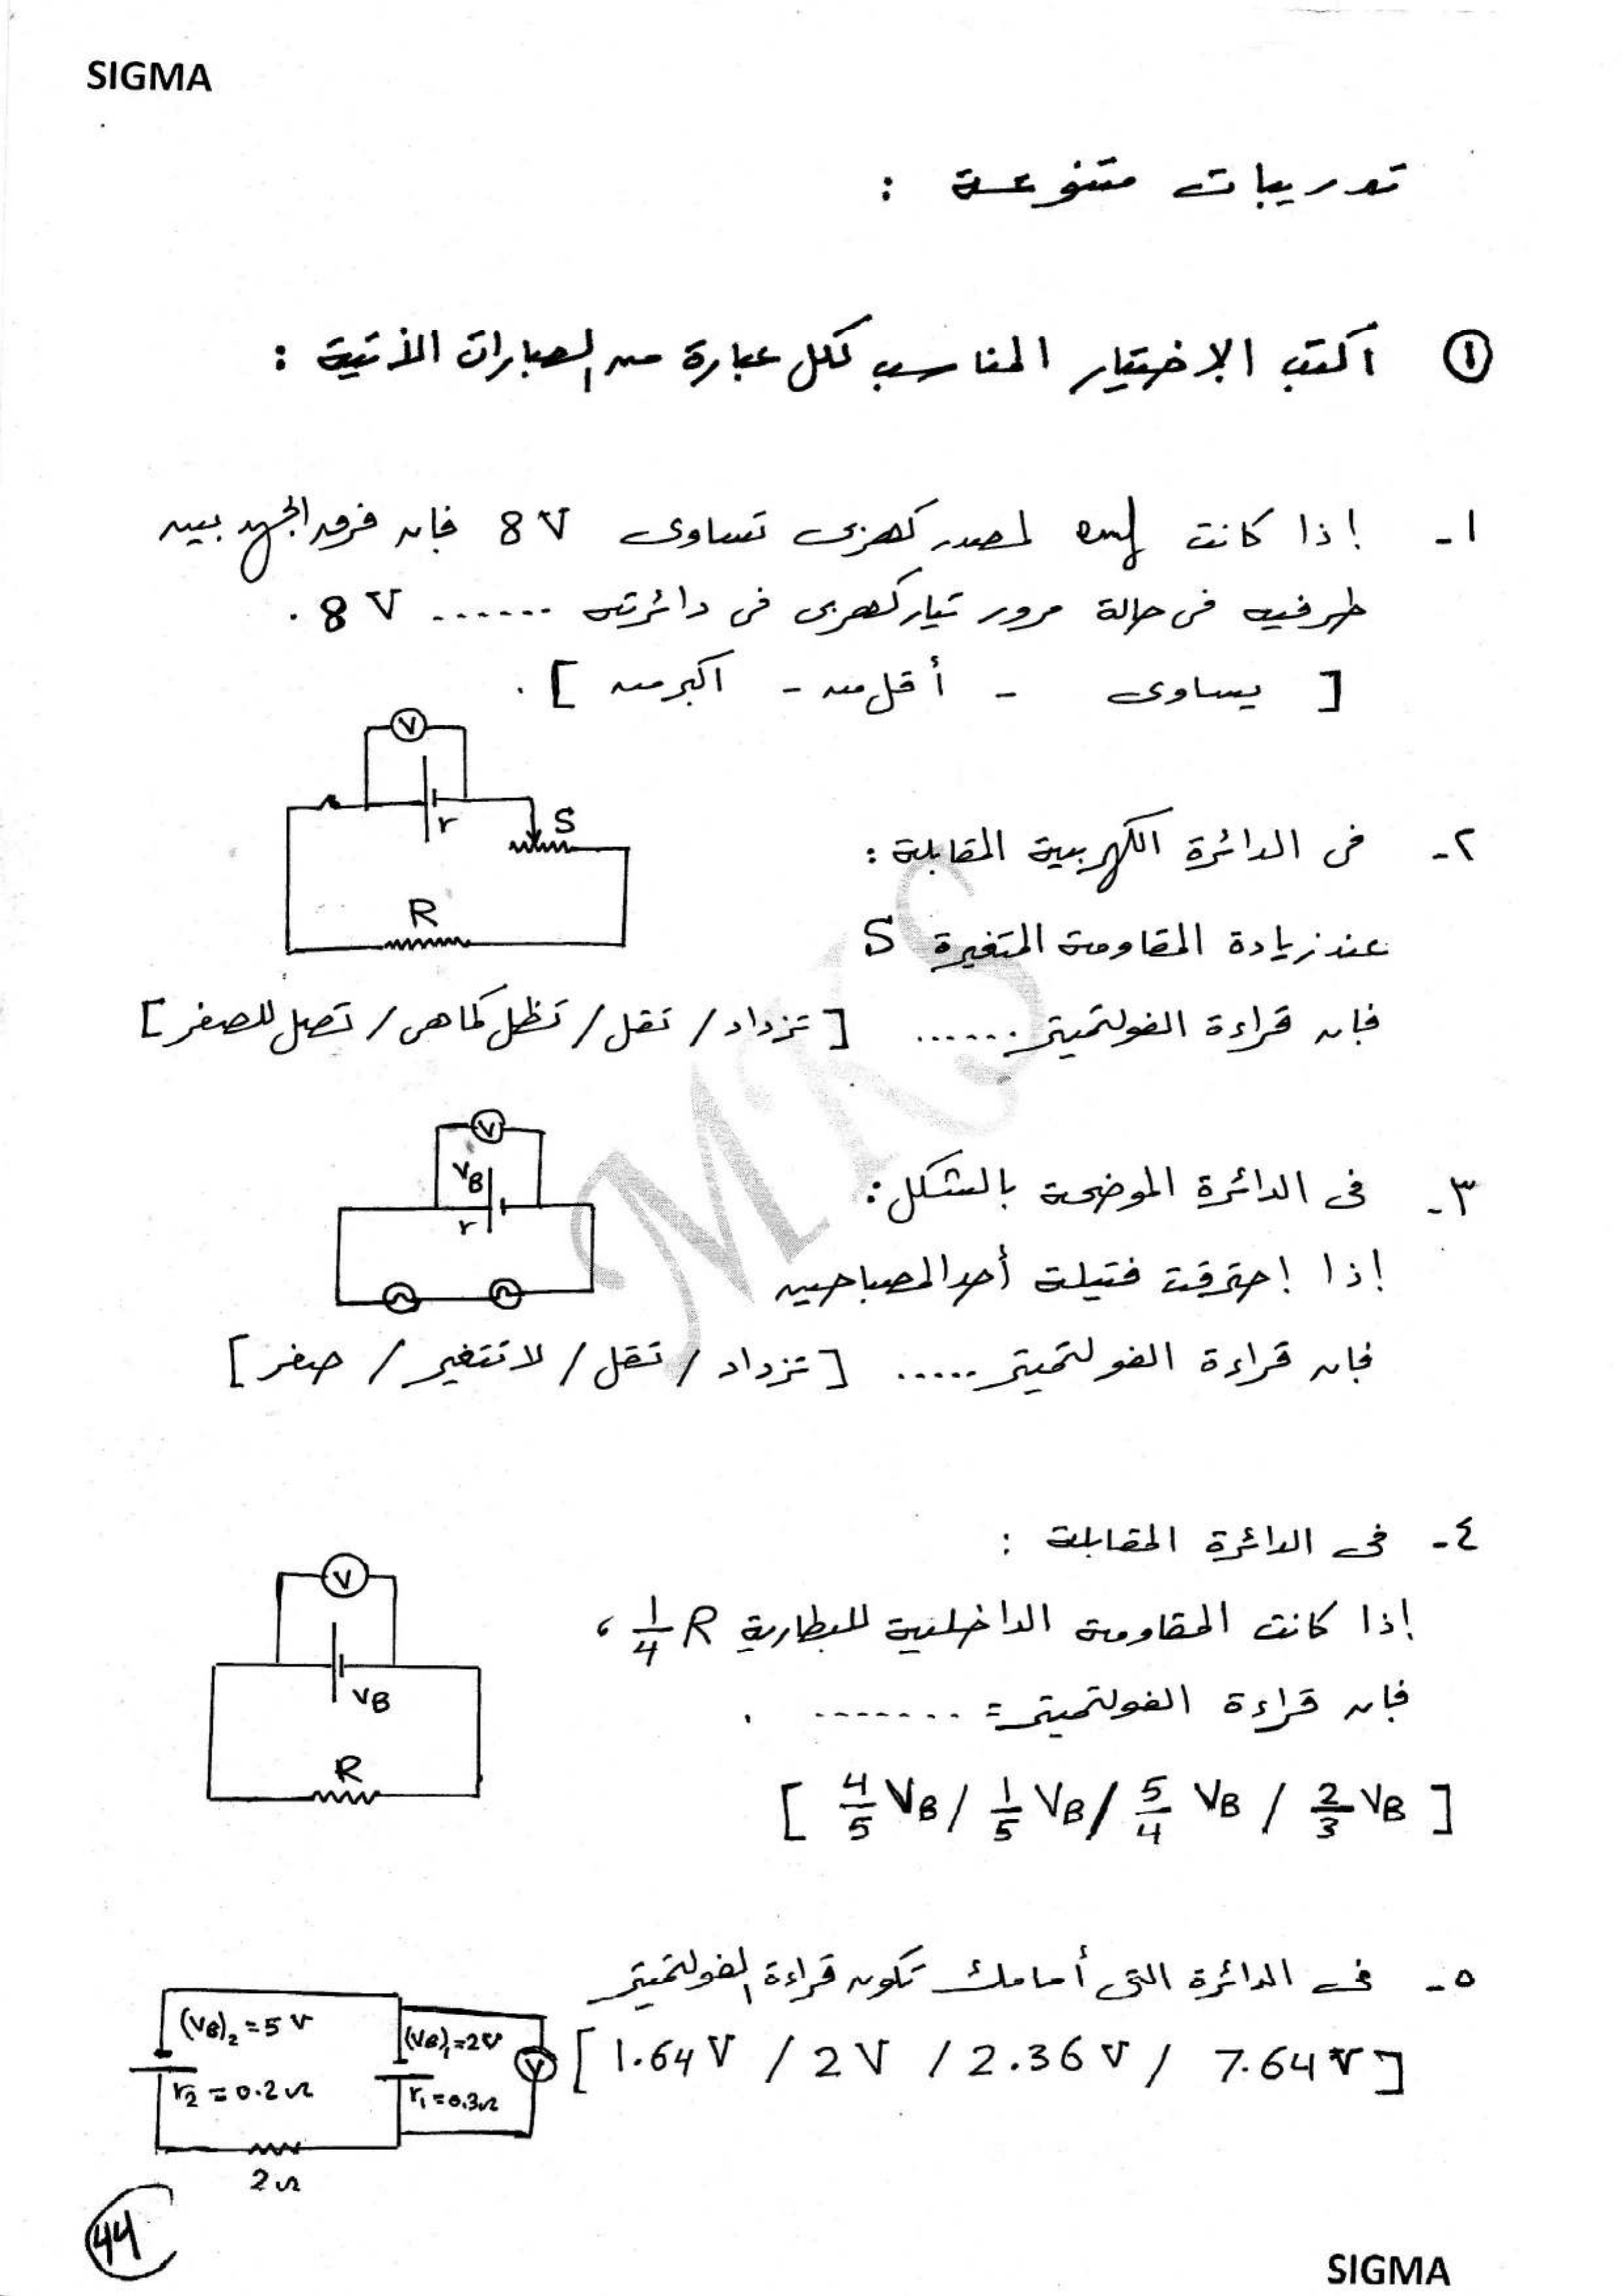 SIGMA
تدريبات متنوعة :
① اكتب الإختيار المناسب لكل عبارة من العبارات الأتية :
١- إذا كانت emf لمصدر كهربى تساوى 8 V فإن فرق الجهد بين
طرفيه فى حالة مرور تيار كهربى فى دائرته ...... 8 V .
[ يساوى - أقل من - اكبر من ] .
V
r
S
R
٢- فى الدائرة الكهربية المقابلة :
عند زيادة المقاومة المتغيرة S
فإن قراءة الفولتميتر ...... [ تزداد / تقل / تظل كما هى / تصل للصفر ]
V
VB
r
٣- فى الدائرة الموضحة بالشكل :
إذا إحترقت فتيلة أحد المصباحين
فإن قراءة الفولتميتر ..... [ تزداد / تقل / لا تتغير / صفر ]
MKS
٤- فى الدائرة المقابلة :
إذا كانت المقاومة الداخلية للبطارية 1/4 R ،
فإن قراءة الفولتميتر = ....... .
[ 4/5 VB / 1/5 VB / 5/4 VB / 2/3 VB ]
V
VB
R
٥- فى الدائرة التى أمامك تكون قراءة الفولتميتر
[ 1.64 V / 2 V / 2.36 V / 7.64 V ]
(VB)2 = 5 V
(VB)1 = 2 V
V
r2 = 0.2 Ω
r1 = 0.3 Ω
2 Ω
44
SIGMA